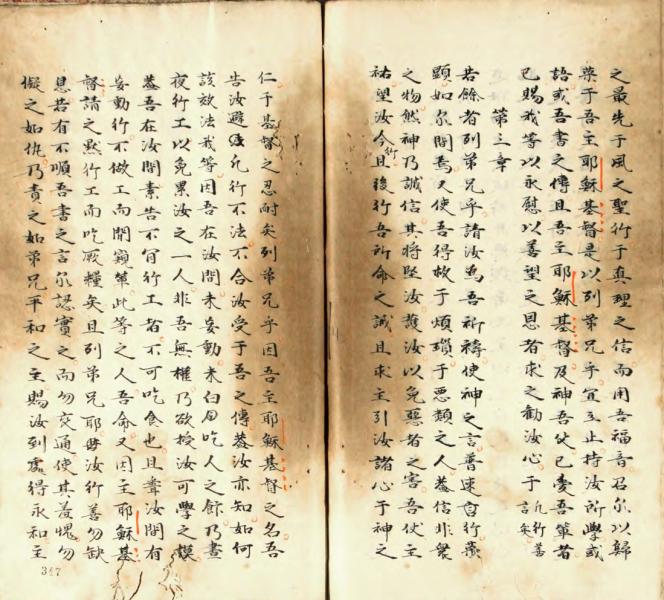 之最先于風之聖行于真理之信而用吾福音召尔以歸
榮于吾主耶穌基督是以列弟兄乎宜立止持汝所學或
語或吾書之傳且吾主耶穌基督及神吾父已愛吾輩者
已賜我等以永慰以善望之恩者求之勸汝心于凡行善言矣
第三章
若餘者列弟兄乎請汝為吾祈禱使神之言普速自行
顯如尔間焉又使吾得救于煩瑣于惡類之人蓋信非衆
之物然神乃誠信其將堅汝護汝以免惡者之害吾仗主
祐望汝今行且後行吾所命之誡且求主引汝諸心于神之
仁于基督之忍耐矣列弟兄乎因吾主耶穌基督之名吾
告汝避凡行不法不合汝受于吾之傳蓋汝亦知如何
該效法我等因吾在汝間未妄動未白吃人之餘乃晝
夜行工以免累汝之一人非吾無權乃欲授汝可學之謨
蓋吾在汝間素告不肯行工者不可吃食也且聞汝間有
妄動行不做工而閒此等之人吾命又因主耶穌基
督請之黙行工而吃厥糧矣且列弟兄耶毋汝行善勿缺
若有不順吾書之言尔誌實之而勿交通使其羞愧勿
儗之如仇乃責之如弟兄平和之主賜汝到處得永和主
347